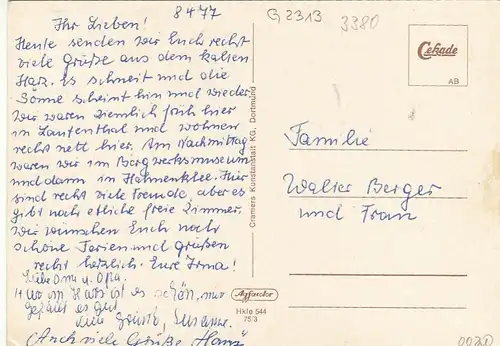 8477
G2313
3380
Ihr Lieben!
Heute senden wir Euch recht
viele Grüße aus dem kalten
Harz. Es schneit und die
Sonne scheint hin und wieder.
Wir waren ziemlich früh hier
in Lautenthal und wohnen
recht nett hier. Am Nachmittag
waren wir im Bergwerksmuseum
und dann im Hahnenklee. Hier
sind recht viele Fremde, aber es
gibt noch etliche freie Zimmer.
Wir wünschen Euch noch
schöne Ferien und grüßen
recht herzlich. Eure Irma!
Liebe Oma u. Opa.
Hier im Harz ist es schön, mir
gefällt es gut
Eure Susanne.
(Auch viele Grüße Hans
Cekade
AB
Cramers Kunstanstalt KG, Dortmund
Familie
Walter Berger
und Frau
Hkle 544
75/3
002D